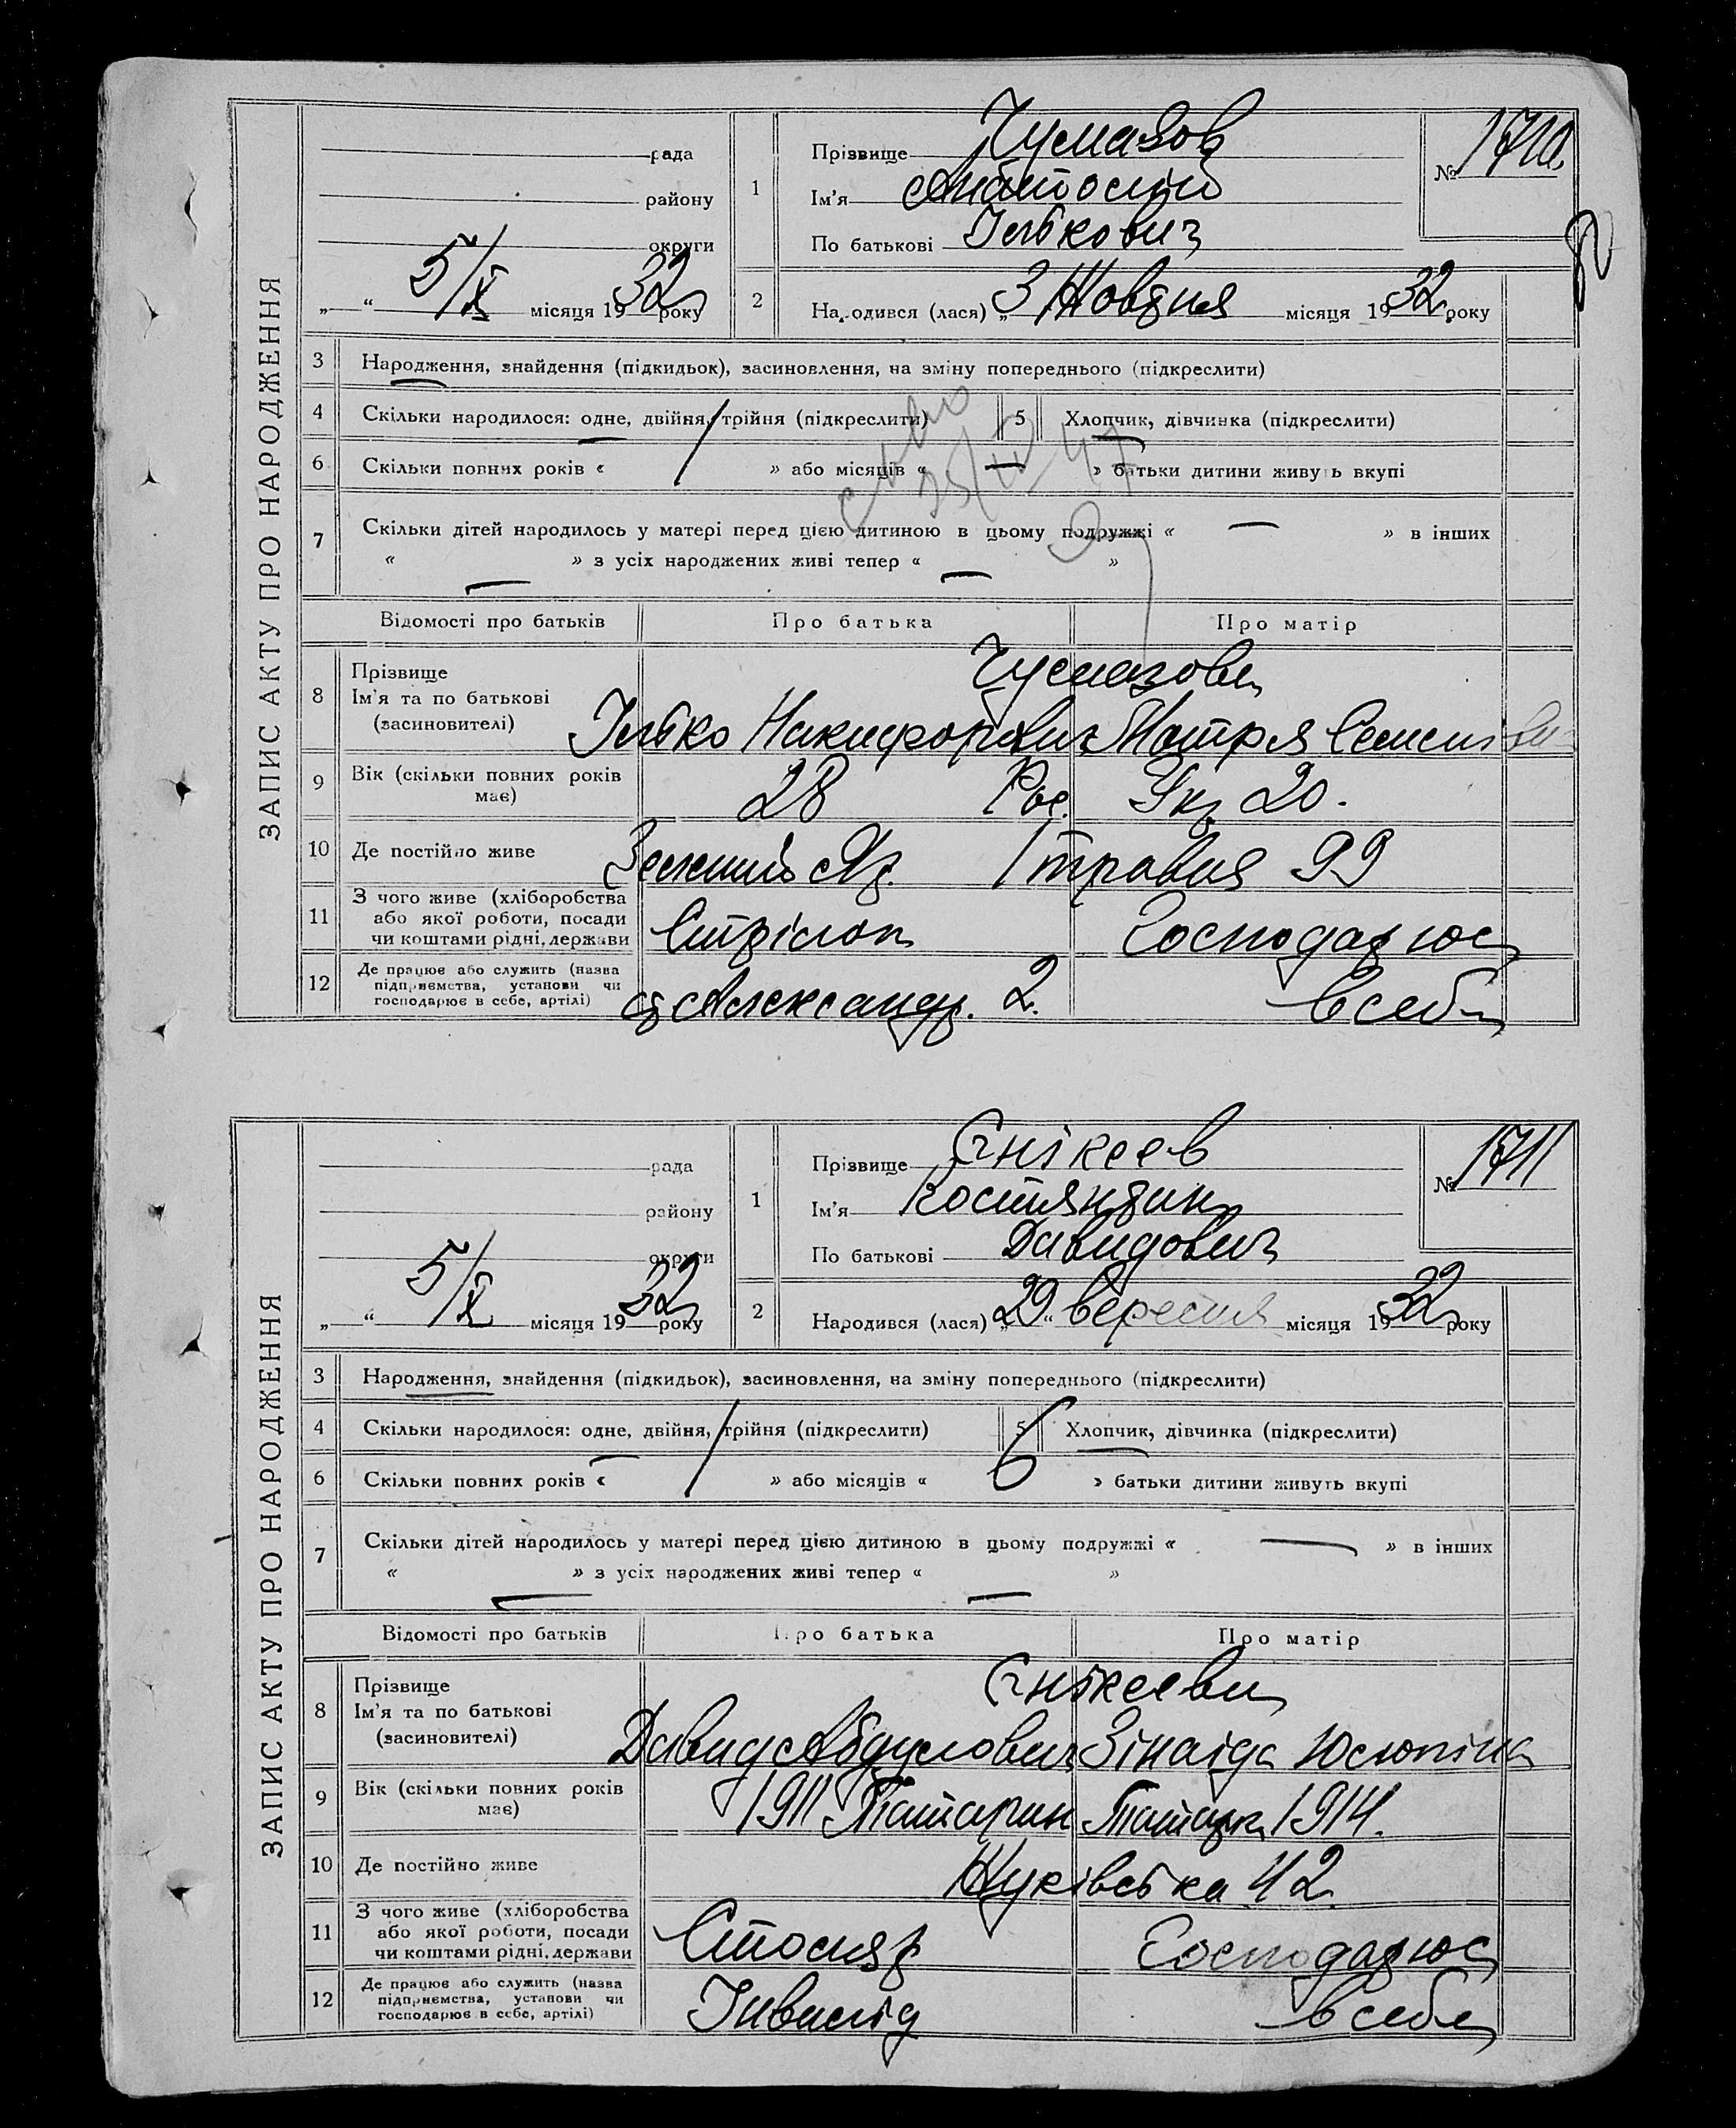 ЗАПИС АКТУ ПРО НАРОДЖЕННЯ
рада
району
округи
„ “ 5/X місяця 1932 року
1
Прізвище Чумазов
Ім'я Анатолій
По батькові Ількович
№ 1710
2
Народився (лася) „3 Жовтня місяця 1932 року
3 Народження, знайдення (підкидьок), засиновлення, на зміну попереднього (підкреслити)
4 Скільки народилося: одне, двійня, трійня (підкреслити) 5 Хлопчик, дівчинка (підкреслити)
6 Скільки повних років « » або місяців « — » батьки дитини живуть вкупі
7 Скільки дітей народилось у матері перед цією дитиною в цьому подружжі « — » в інших
« — » з усіх народжених живі тепер « — »
Відомості про батьків Про батька Про матір
8 Прізвище
Ім'я та по батькові
(засновителі)
Чумазови
Ілько Никифорович Мотря Семенівн
9 Вік (скільки повних років має) 28 Рос. Укр 20.
10 Де постійно живе Зелений Яр. 1 травня 99
11 З чого живе (хліборобства або якої роботи, посади чи коштами рідні, держави Стрілок Господарює
12 Де працює або служить (назва підприємства, установи чи господарює в себе, артілі) ст Александр. 2. в себе
ЗАПИС АКТУ ПРО НАРОДЖЕННЯ
рада
району
округи
„ “ 5/X місяця 1932 року
1
Прізвище Єнікеев
Ім'я Костянтин
По батькові Давидович
№ 1711
2
Народився (лася) „29“ вересня місяця 1932 року
3 Народження, знайдення (підкидьок), засиновлення, на зміну попереднього (підкреслити)
4 Скільки народилося: одне, двійня, трійня (підкреслити) 5 Хлопчик, дівчинка (підкреслити)
6 Скільки повних років « » або місяців « 6 » батьки дитини живуть вкупі
7 Скільки дітей народилось у матері перед цією дитиною в цьому подружжі « — » в інших
« — » з усіх народжених живі тепер « — »
Відомості про батьків Про батька Про матір
8 Прізвище
Ім'я та по батькові
(засиновителі)
Єнікееви
Давид Абдулович Зінаіда Юсюпіна
9 Вік (скільки повних років має) 1911 Татарин Татарка 1914.
10 Де постійно живе Жуківська 42
11 З чого живе (хліборобства або якої роботи, посади чи коштами рідні, держави Столяр Господарює
12 Де працює або служить (назва підприємства, установи чи господарює в себе, артілі) Інвалід в себе